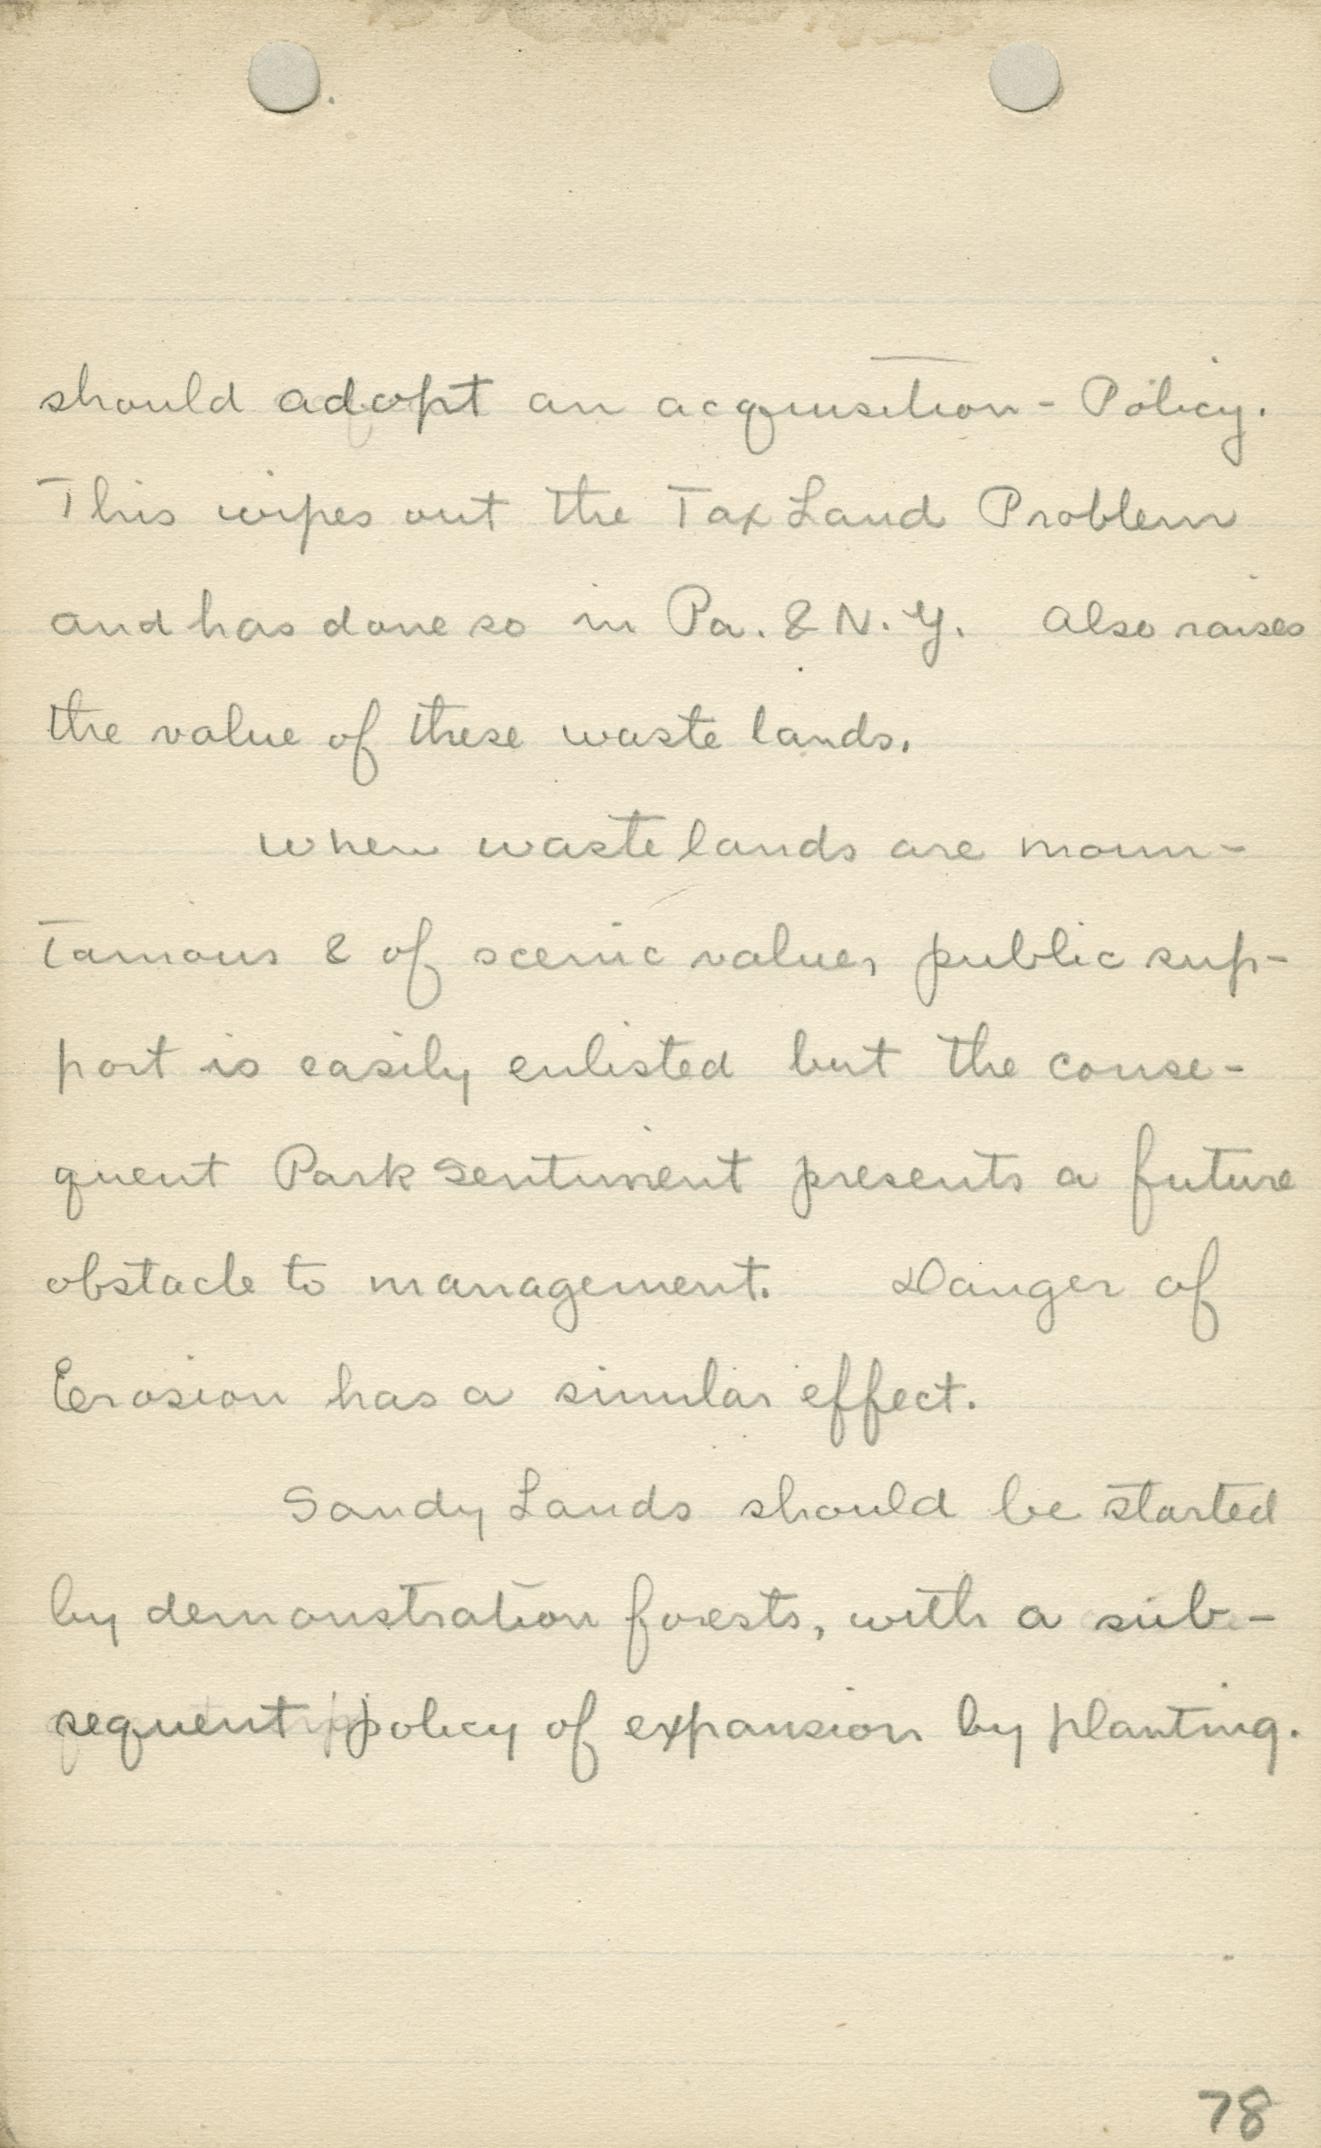 should adopt an acquisition - Policy.
This wipes out the Tax Land Problem
and has done so in Pa. & N.Y. Also raises
the value of these waste lands.
When waste lands are moun-
tainous & of scenic value, public sup-
port is easily enlisted but the conse-
quent Park Sentiment presents a future
obstacle to management. Danger of
Erosion has a similar effect.
Sandy Lands should be started
by demonstration forests, with a sub-
sequent policy of expansion by planting.
78